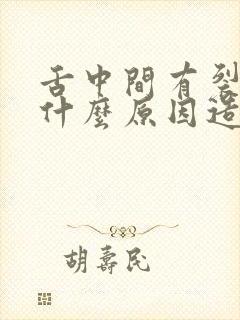 舌中間有裂
什麼原因造
胡壽民